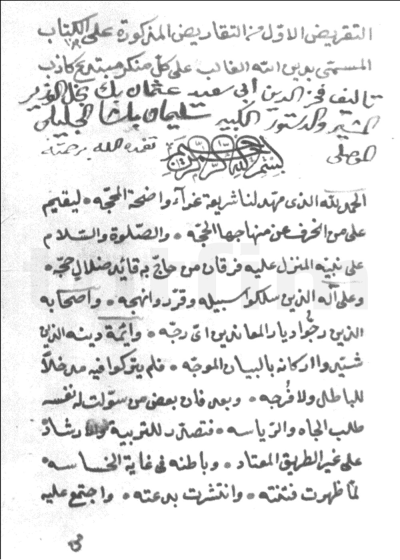 التقريض الاول من التقاريض المذكورة على الكتاب
المسمى بدين الله الغالب على كل منكر مبتدع كاذب
تاليف فخر الدين ابى سعيد عثمان بك نجل الوزير
المشير والدستور الكبير سليمان باشا الجليلى
الموصلى تغمده الله برحمته
بسم الله الرحمن الرحيم
الحمد لله الذى مهد لنا شريعة غراء واضحة المحجه ۰ ليقيم
على من انحرف عن منهاجها الحجه ۰ والصلوة والسلام
على نبيه المنزل عليه فرقان من حاج به قائد ضلال حجه ۰
وعلى آله الذين سلكوا سبيله وقرروا نهجه ۰ واصحابه
الذين رجوا ديار المعاندين اى رجه ۰ وائمة دينه الذين
شيدوا اركانه بالبيان الموجه ۰ فلم يتركوا فيه مدخلا
للباطل ولا فرجه ۰ وبعد فان بعض من سولت له نفسه
طلب الجاه والرياسه ۰ فتصدر للتربية والارشاد
على غير الطريق المعتاد ۰ وباطنه فى غاية الخساسه ۰
لما ظهرت فتنته ۰ وانتشرت بدعته ۰ واجتمع عليه